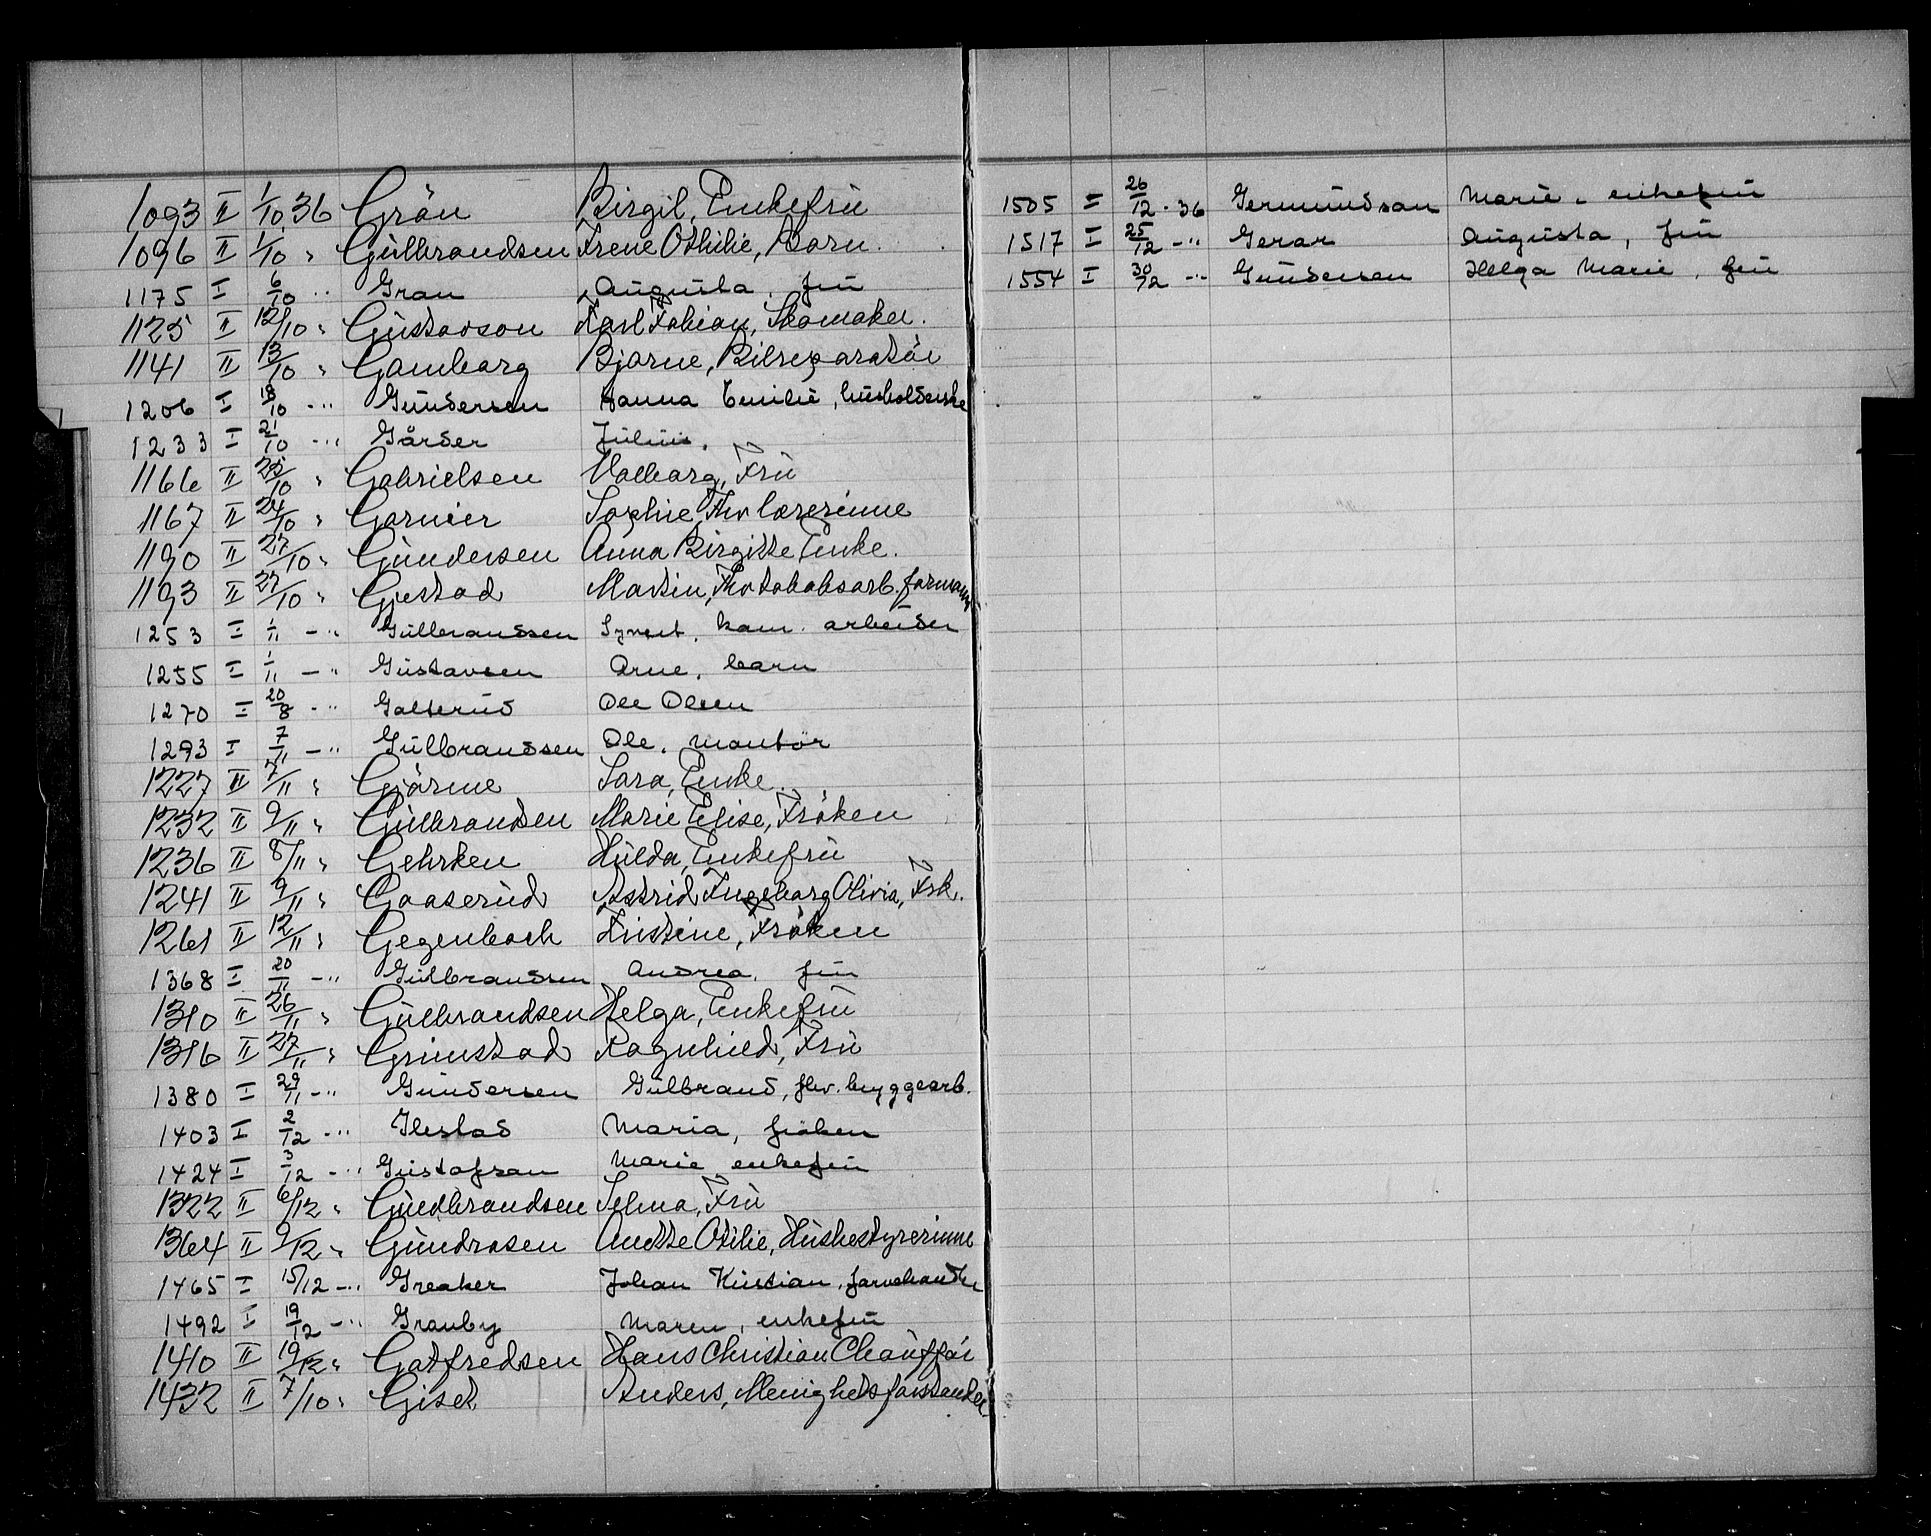 1093 II 1/10 36 Grön Birgit, Enkefrü
1096 II 1/10 " Gülbrandsen Irene Othilie, Barn.
1175 I 6/10 " Gran Augusta, frü
1125 II 12/10 " Gustavson Karl Fabian, Skomaker.
1141 II 13/10 " Gamborg Bjarne, Bilreparatör
1206 I 18/10 - " Gündersen Hanna Emilie, husholderske
1233 I 21/10 - " Gårder Julius.
1166 II 25/10 " Gabrielsen Valborg, Frü
1167 II 24/10 " Garnier Sophie, Fhv lærerinne
1190 II 27/10 " Gündersen Anna Birgitte Enke.
1193 II 27/10 " Gjestad Martin, Fhv tobaksarb. formann
1253 I 1/11 - " Gülbrandsen Syvert, kom. arbeider
1255 I 1/11 - " Güstavsen Arne, barn
1270 I 20/8 - " Galterud Ole Olsen
1293 I 7/11 - " Gülbrandsen Ole, montör
1227 II 7/11 " Gjörme Sara, Enke.
1232 II 9/11 " Gülbrandsen Marie Elise, Fröken
1236 II 8/11 " Gehrken Hülda, Enkefrü
1241 II 9/11 " Gaaserüd Astrid Ingeborg Olivia, Frk.
1261 II 12/11 " Gegenbach Kristine, Fröken
1368 I 20/11 - " Gülbrandsen Andrea, frü
1310 II 26/11 " Gülbrandsen Helga, Enkefrü
1316 II 27/11 " Grimstad Ragnhild, Frü
1380 I 29/11 - " Gündersen Gülbrand, fhv. bryggearb.
1403 I 2/12 - " Glestad Maria, fröken
1424 I 3/12 - " Güstafson Marie enkefrü
1322 II 6/12 " Güdbrandsen Selma, Frü
1364 II 9/12 " Gündrosen Anette Otilie, Hüsbestyrerinne
1465 I 15/12 - " Greaker Johan Kristian, farvehandler
1492 I 19/12 - " Granby Maren, enkefrü
1410 II 19/12 " Gotfredsen Hans Christian Chaüfför
1432 II 7/10 " Giset Anders, Menighetsforstander
1505 I 26/12 - 36 Germündson Marie - enkefrü
1517 I 25/12 - " Gerar Augusta, frü
1554 I 30/12 - " Gündersen Helga Marie, frü